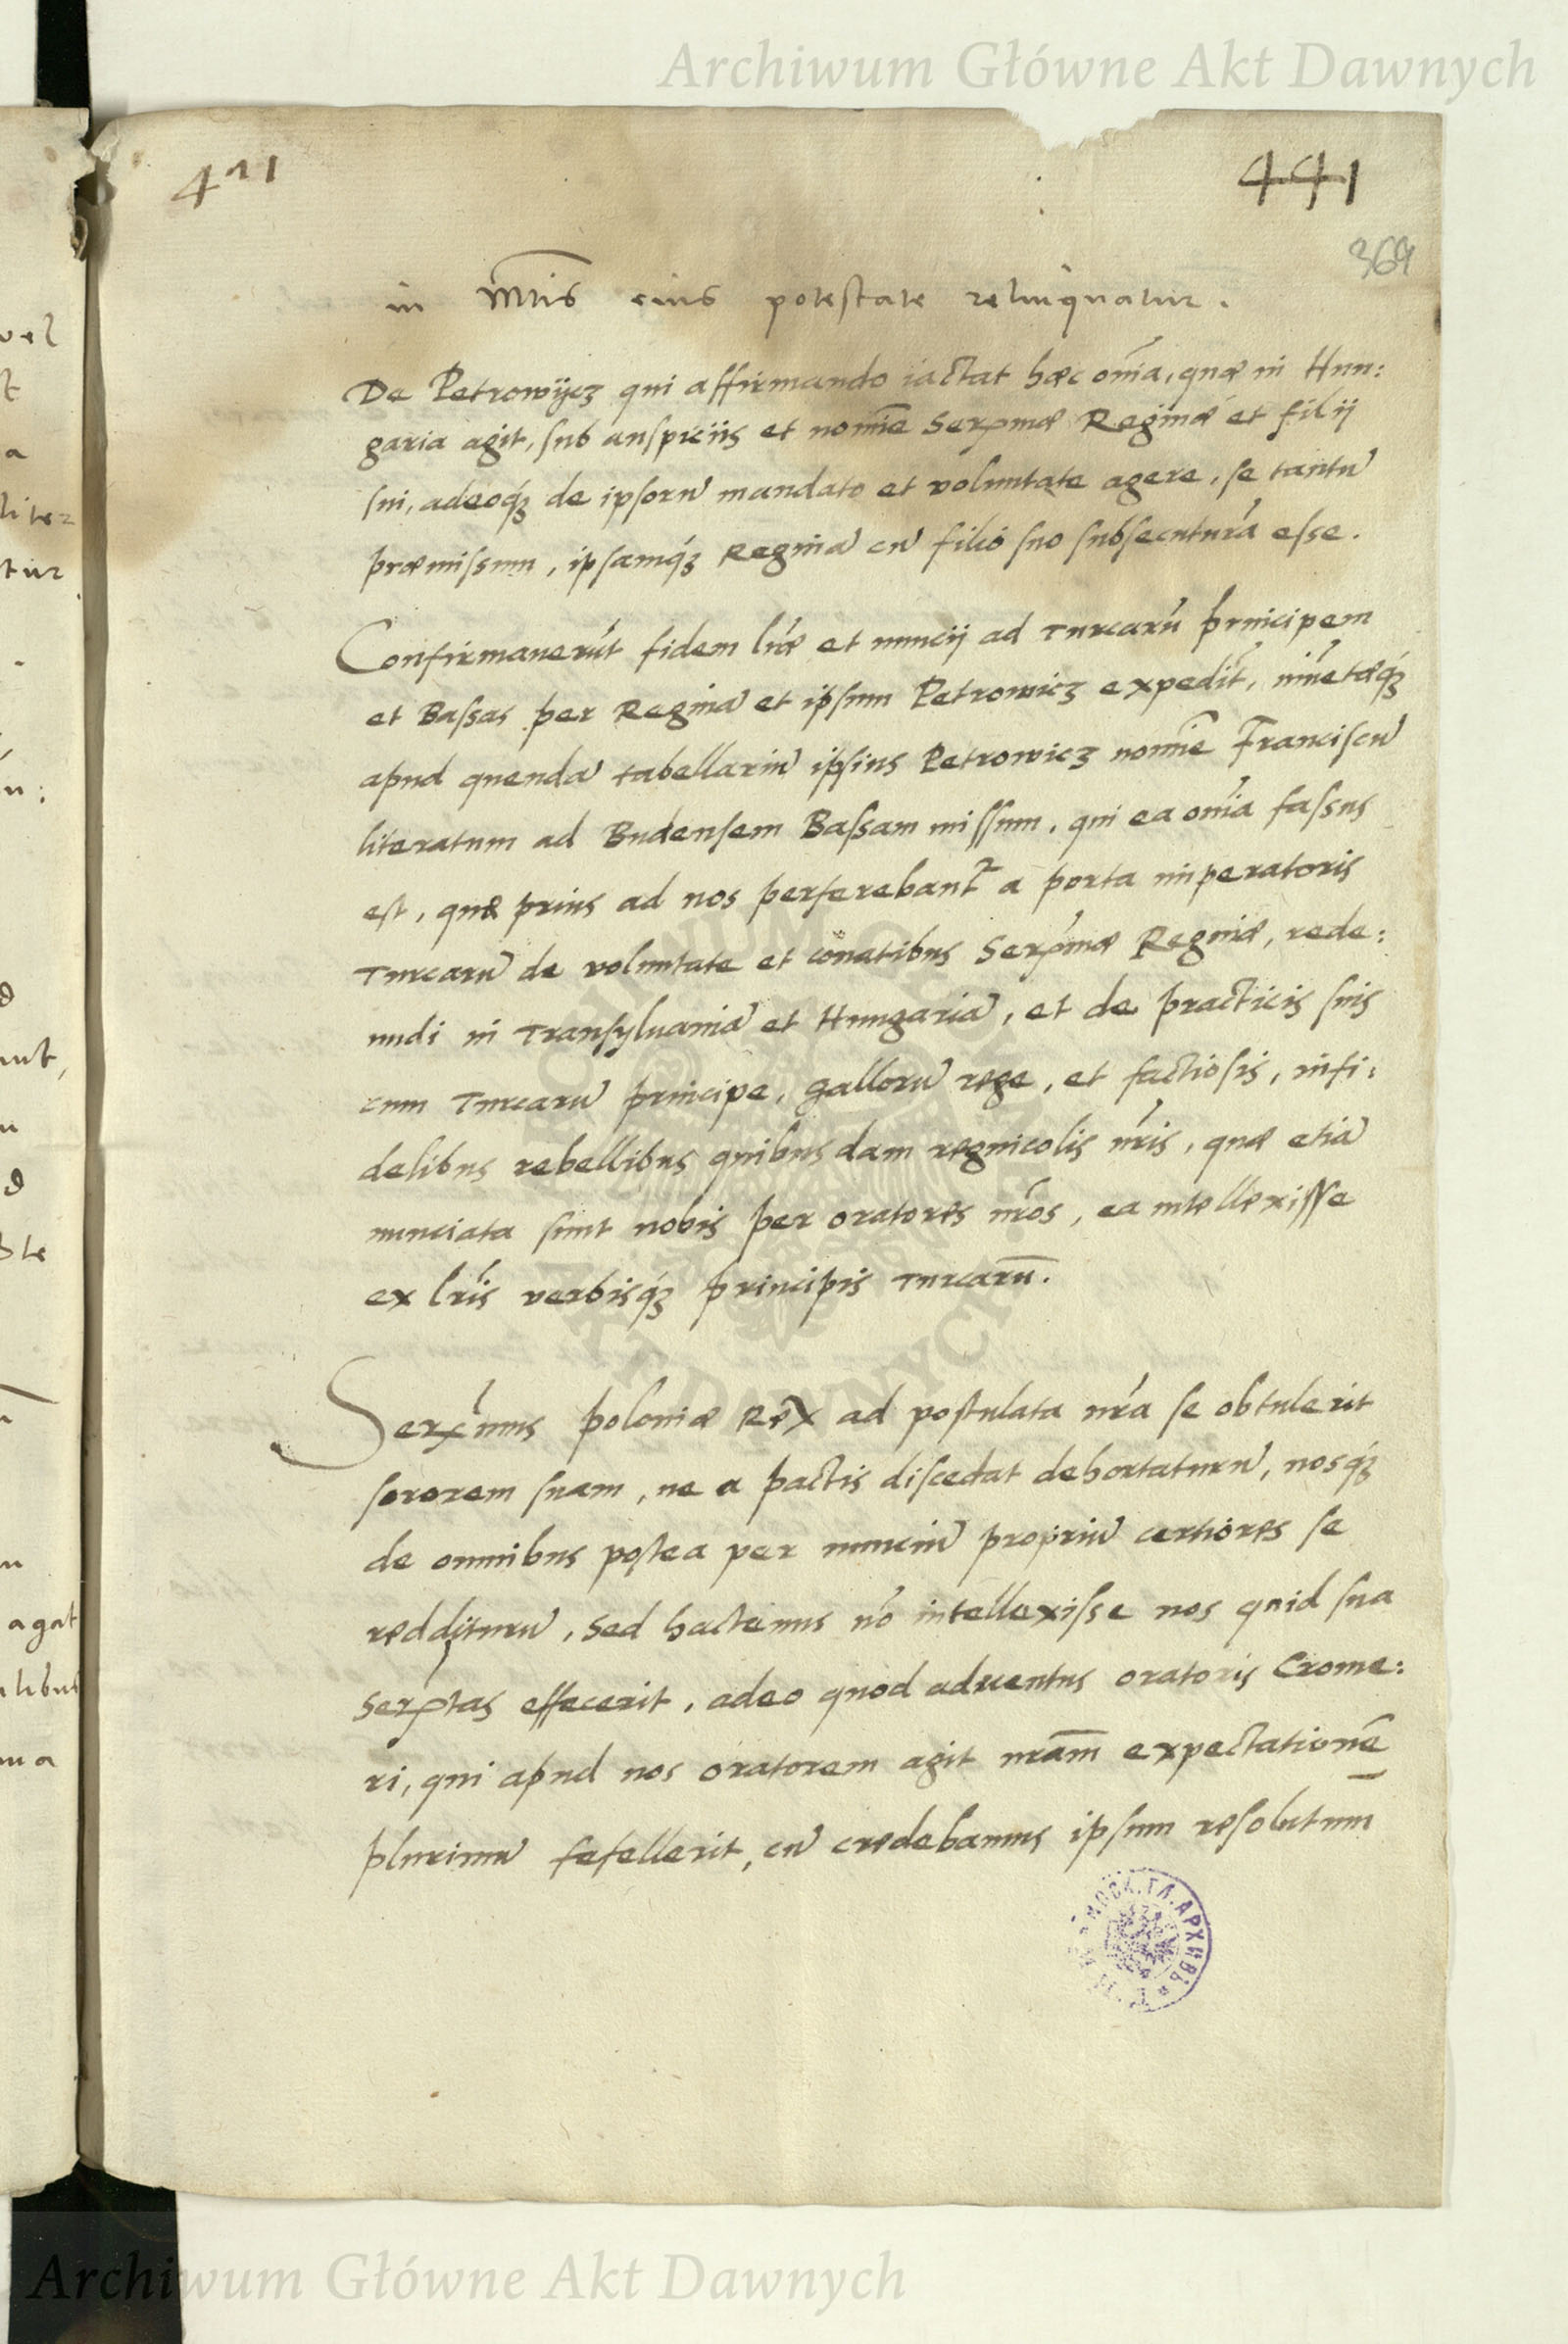 Archiwum Główne Akt Dawnych
441
369
in Mtis eius potestate relinquatur.
De Petrowÿcz qui affirmando iactat hæc oīa, quæ in Hun:
garia agit, sub auspiciis et nomīe Serēmæ Reginæ et filij
sui, adeoq́ȝ de ipsorū mandato et voluntate agere, se tantū
præmissum, ipsamq́ȝ Reginā cū filio suo subsecuturā esse.
Confirmauerūt fidem lrǽ et nuncij ad Turcarū principem
et Bassas per Reginā et ipsum Petrowicz expediti, inuētæq́ȝ
apud quendā tabellariū ipsius Petrowicz nomīe Franciscū
literatum ad Budensem Bassam missum, qui ea omīa fassus
est, quæ prius ad nos perferebant̃ a porta imperatoris
Turcarū de voluntate et conatibus Serēmæ Reginæ, rede:
undi in Transyluaniā et Hungariā, et de practicis suis
cum Turcarū principe, gallorū rege, et factiosis, infi:
delibus rebellibus quibusdam regnicolis nr̄is, quæ etiā
nunciata sunt nobis per oratores nr̄os, ea intellexisse
ex lr̄is verbisq́ȝ principis Turcarū.
Serēnmus poloniæ Rex ad postulata nr̄a se obtulerit
sororem suam, ne a pactis discedat dehortaturū, nosq́ȝ
de omnibus postea per nunciū propriū certiores se
redditurū, sed hactenus nō intellexisse nos quid sua
Serētas effecerit, adeo quod aduentus oratoris Crome:
ri, qui apud nos oratorem agit nr̄am expectationē
plurimū fefellerit, cū credebamus ipsum resolutum
МОСК. ГЛ. АРХИВЪ
ARCHIWUM GŁÓWNE AKT DAWNYCH
Archiwum Główne Akt Dawnych